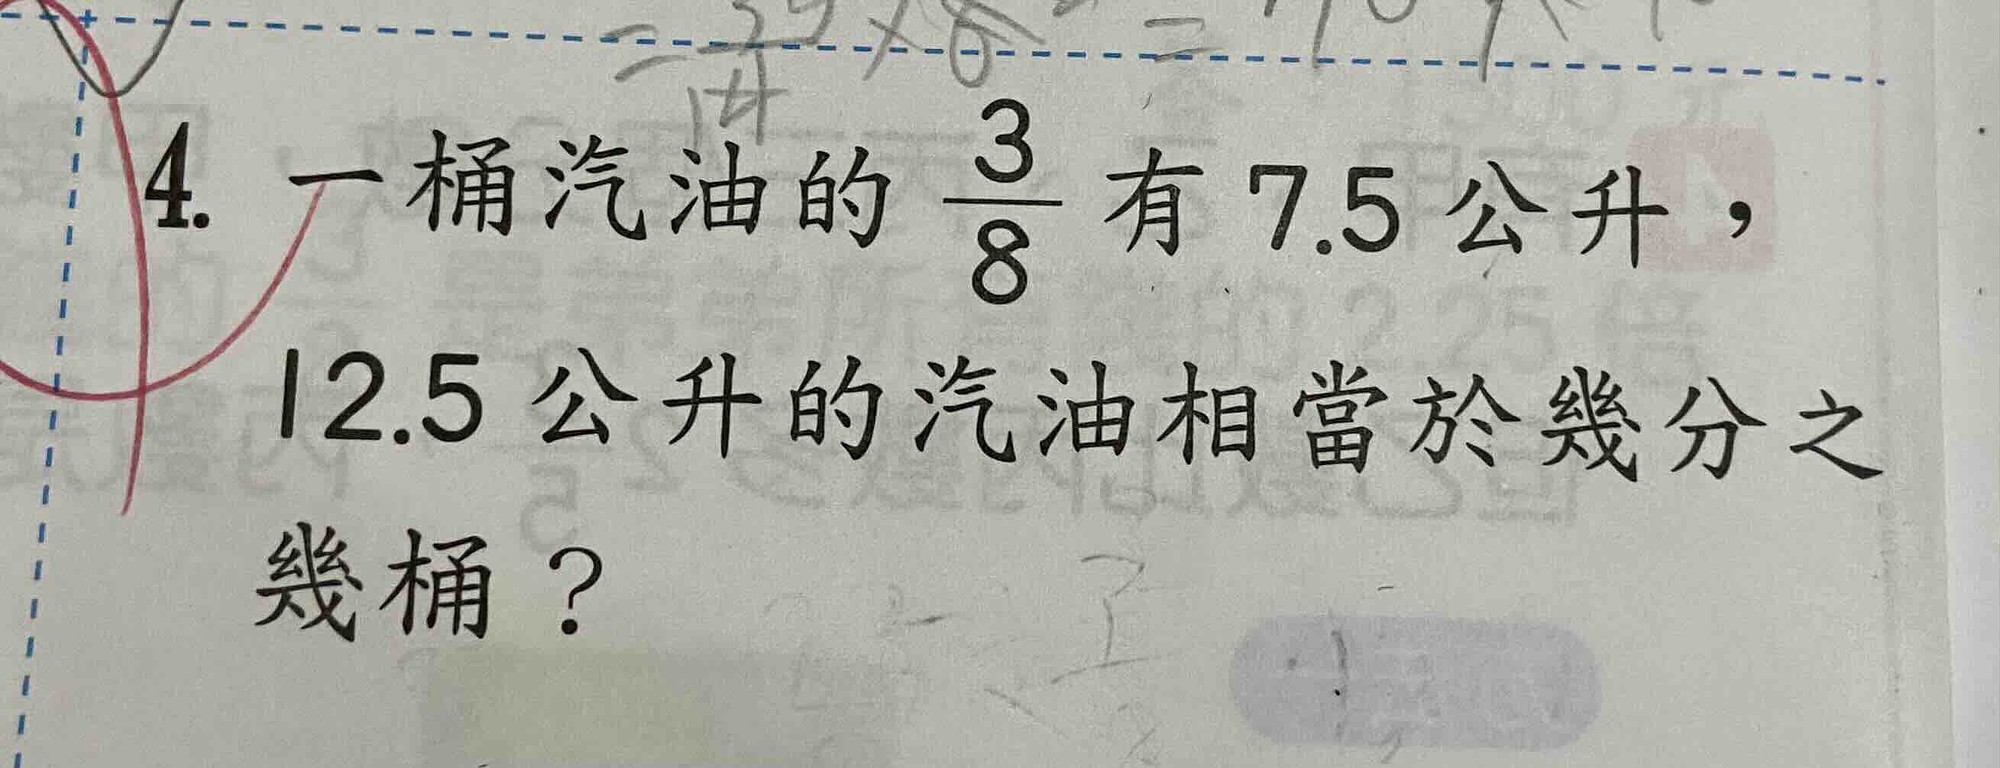 4. 一桶汽油的 3/8 有 7.5 公升，
12.5 公升的汽油相當於幾分之
幾桶？